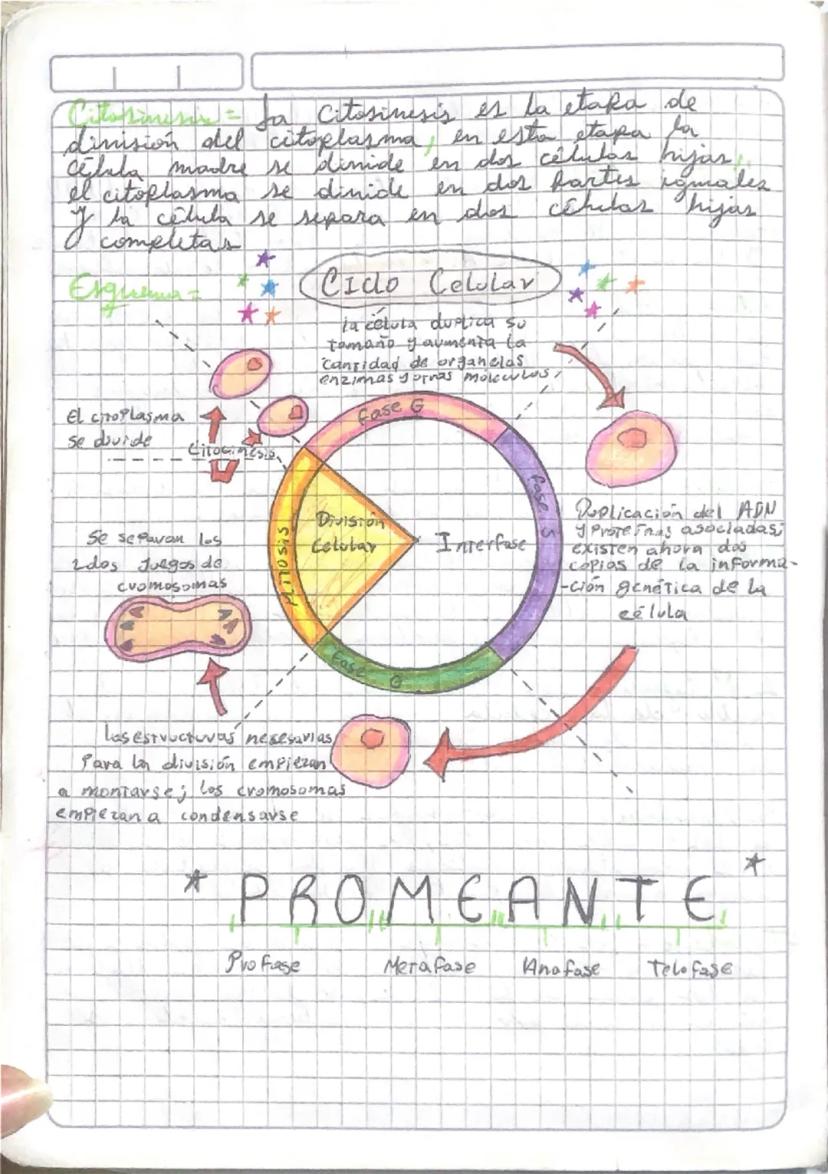 Citosinesis = La citosinesis es la etapa de
división del citoplasma, en esta etapa la
célula madre se divide en dos células hijas,
el citoplasma se divide en dos partes iguales
y la célula se separa en dos células hijas
completas
Esquema =
Ciclo Celular
la célula duplica su
tamaño y aumenta la
cantidad de organelos
enzimas y otras moléculas
Fase G
El citoplasma
se divide
Citocinesis
Fase S
Duplicación del ADN
y Proteínas asociadas;
existen ahora dos
copias de la informa-
-ción genética de la
célula
División
Celular
Interfase
Mitosis
Se separan los
2dos Juegos de
cromosomas
Fase G
Las estructuras nesesarias
Para la división empiezan
a montarse; los cromosomas
empiezan a condensarse
* PROMEANTE *
Profase Metafase Anafase Telofase